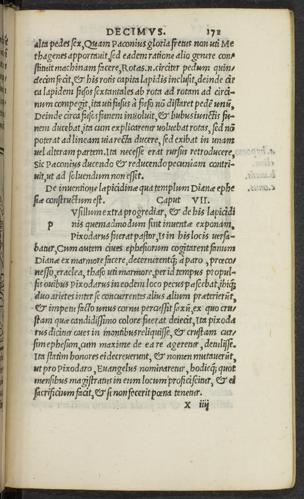 DECIMVS. 172
alta pedes sex, Quam Paconius gloria fretus non uti Me
thagenes apportauit, sed eadem ratione alio genere con-
stituit machinam facere, Rotas.n. circiter pedum quin-
decim fecit, & his rotis capita lapidis inclusit, deinde cir
ca lapidem fusos sextantales ab rota ad rotam ad circi
num compegit, ita uti fusus à fuso nõ distaret pedẽ unũ,
Deinde circa fusos funem inuoluit, & bubus iunctis fu
nem ducebat, ita cum explicaretur uoluebat rotas, sed nõ
poterat ad lineam uia recta ducere, sed exibat in unam
uel alteram partem. Ita necesse erat rursus retroducere,
Sic Paconius ducendo & reducendo pecuniam contri-
uit, ut ad soluendum non esset.
De inuentione lapicidinæ qua templum Dianæ ephe
siæ constructum est. Caput VII.
P
Vsillum extra progrediar, & de his lapicidi
nis quemadmodum sint inuentæ exponam,
Pixodarus fuerat pastor, Is in his locis uersa-
batur, Cum autem ciues ephesiorum cogitarent fanum
Dianæ ex marmore facere, decernerentq; à paro, præco
nesso, eraclea, thaso uti marmore, per id tempus propul-
sis ouibus Pixodarus in eodem loco pecus pascebat, ibiq;
duo arietes inter se concurrentes alius alium præterierũt,
& impetu facto unus cornu percussit saxũ, ex quo cru
sta quæ candidissimo colore fuerat deiecit, Ita pixoda
rus dicitur oues in montibus reliquisse, & crustam cur-
sim ephesum, cum maxime de eare ageretur, detulisse.
Ita statim honores ei decreuerunt, & nomen mutauerũt,
ut pro Pixodaro, Euangelus nominaretur, hodieq; quot
mensibus magistratus in eum locum proficiscitur, & ei
sacrificium facit, & si non fecerit pœna tenetur.
X iiij